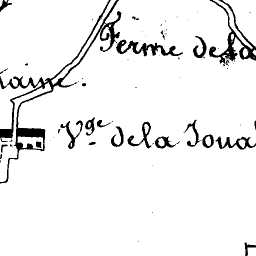 Ferme de la
taine.
Vge de la Joua